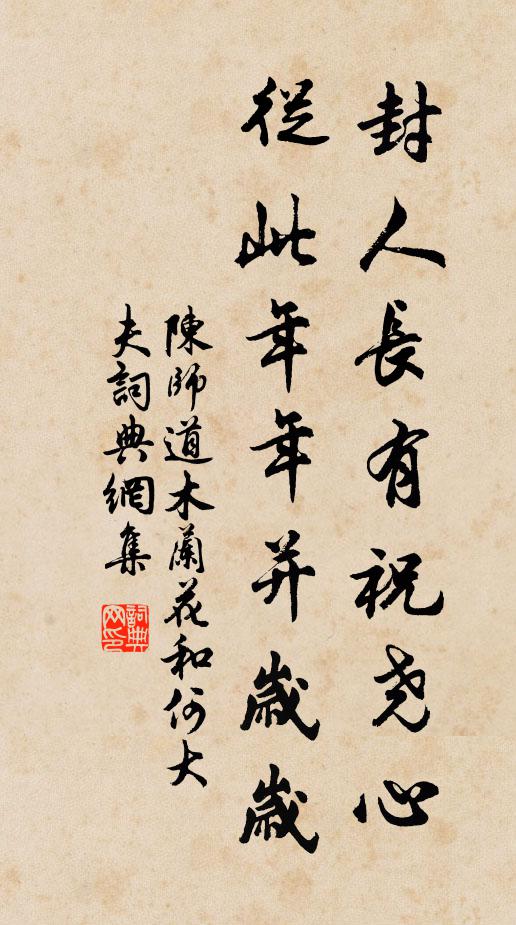 封人長有祝尧心
從此年年并歲歲
陳師道木蘭花和何大
夫詞典網集
詞典网印